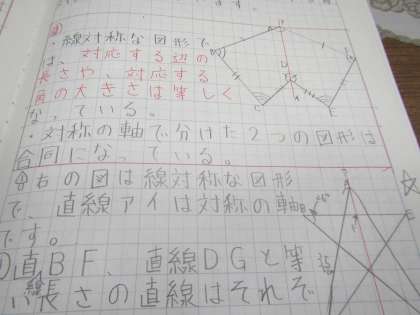 ・線対称な図形で
は、対応する辺の
長さや、対応する
角の大きさは等しく
なっている。
・対称の軸で分けた2つの図形は
合同になっている。
④右の図は線対称な図形
で、直線アイは対称の軸
です。
①直BF、直線DGと等
い長さの直線はそれぞ